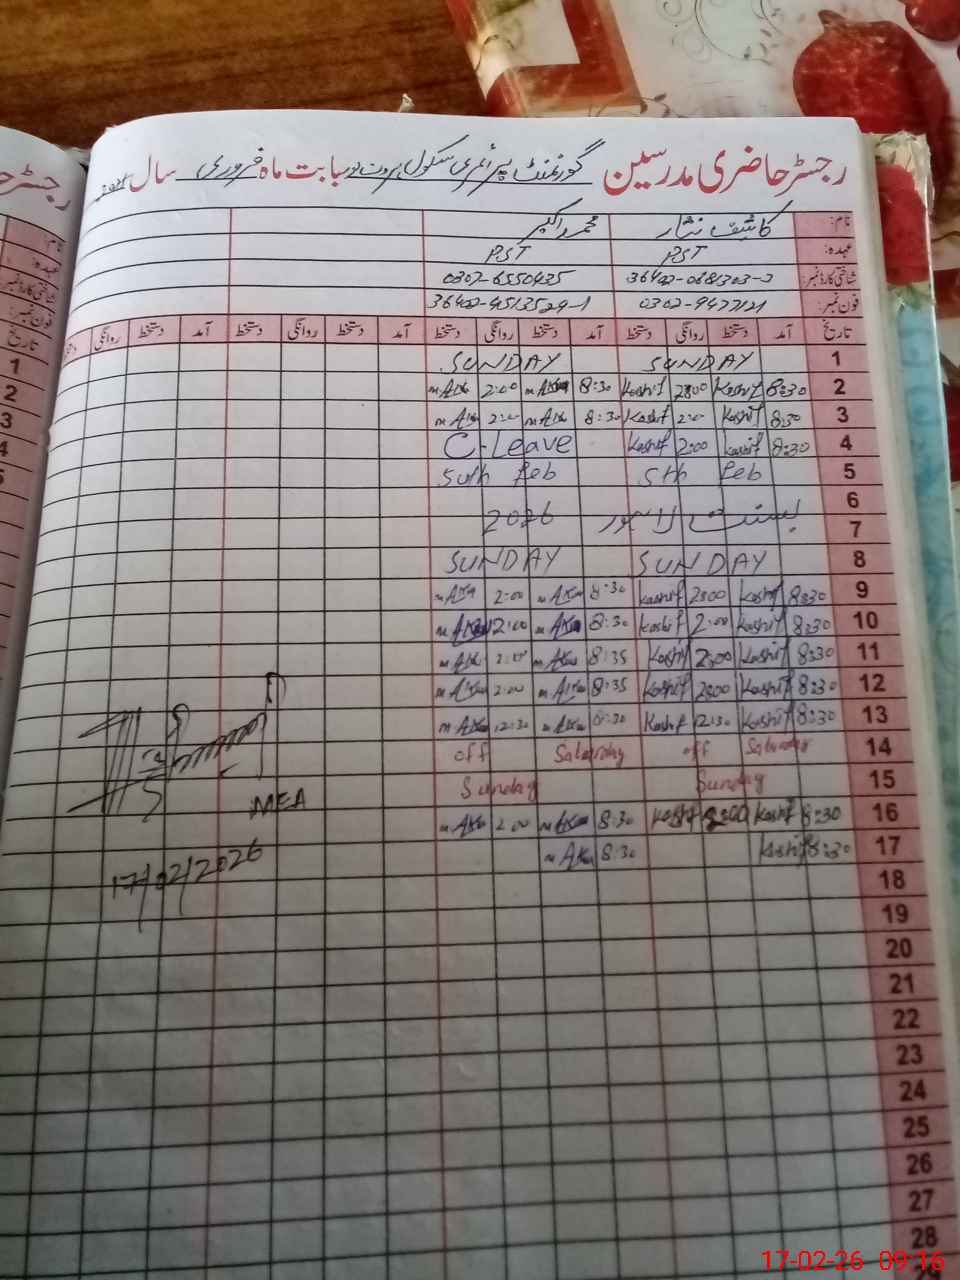 رجسٹر حاضری مدرسین گورنمنٹ پرائمری سکول بابت ماہ فروری سال
نام: کاشف نثار محمد اکبر
عہدہ: PST PST
شناختی کارڈ نمبر: 0307-6550435
فون نمبر: 0302-9477121 36402-4513529-1
تاریخ آمد دستخط روانگی دستخط آمد دستخط روانگی دستخط آمد دستخط روانگی دستخط آمد دستخط روانگی
1 SUNDAY SUNDAY
2 8:30 Kashif 2:00 Kashif 8:30 m Akba 2:00 m Akba
3 8:30 Kashif 2:00 Kashif 8:30 m Akba 2:00 m Akba
4 8:30 Kashif 2:00 Kashif C-Leave
5 5th Feb 5th Feb
6
7 بسنت لاہور 2026
8 SUNDAY SUNDAY
9 8:30 Kashif 2:00 Kashif 8:30 m Akba 2:00 m Akba
10 8:30 Kashif 2:00 Kashif 8:30 m Akba 2:00 m Akba
11 8:30 Kashif 2:00 Kashif 8:35 m Akba 2:00 m Akba
12 8:30 Kashif 2:00 Kashif 8:35 m Akba 2:00 m Akba
13 8:30 Kashif 12:30 Kashif 8:30 m Akba 12:30 m Akba
14 Saturday off Saturday off
15 Sunday Sunday
16 8:30 Kashif 2:00 Kashif 8:30 m Akba 2:00 m Akba
17 8:30 Kashif 8:30 m Akba
MEA
17/02/2026
18
19
20
21
22
23
24
25
26
27
28
رجسٹر
نام:
عہدہ:
شناختی کارڈ نمبر:
فون نمبر:
تاریخ
1
2
3
4
5
17-02-26 09:16